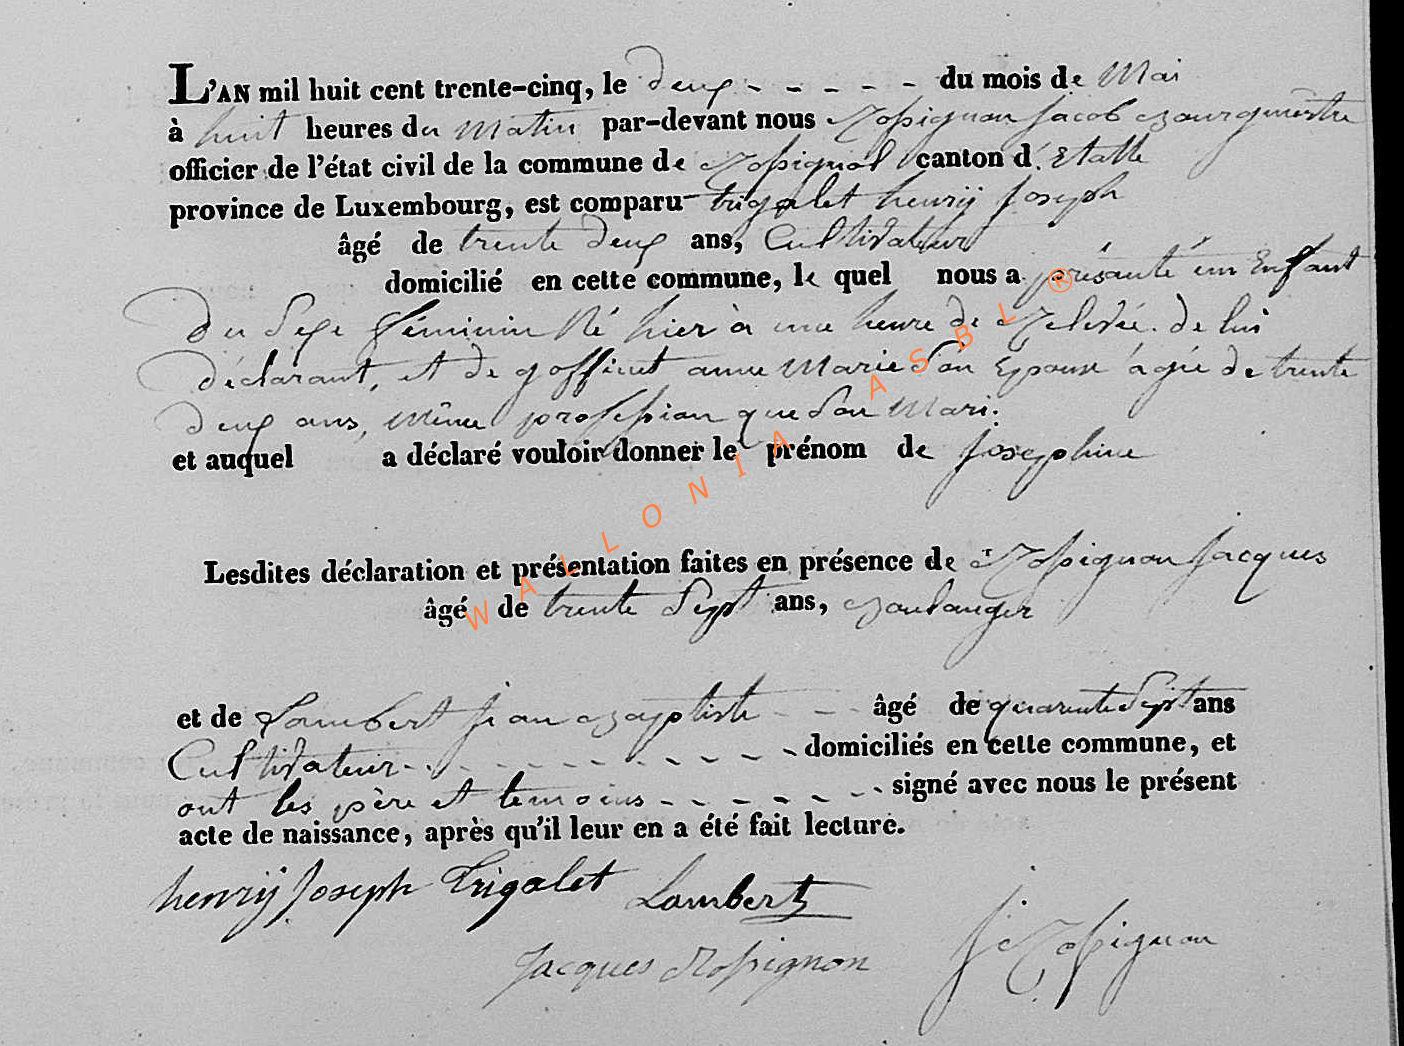 L'AN mil huit cent trente-cinq, le deux - - - - - du mois de Mai
à huit heures du Matin par-devant nous Rossignon Jacob Bourguestre
officier de l'état civil de la commune de Rossignol canton d'Etalle
province de Luxembourg, est comparu trigalet henrÿ Joseph
âgé de trente deux ans, Cultivateur
domicilié en cette commune, le quel nous a présanté un Enfant
du Sexe féminin Né hier à une heure de Relevée. de lui
déclarant, et de goffinet anne Marie Son Epouse âgée de trente
deux ans, Même profession que Son Mari.
et auquel a déclaré vouloir donner le prénom de Josephine
Lesdites déclaration et présentation faites en présence de Rossignon Jacques
âgé de trente Sept ans, Boulanger
et de Lambert Jean Baptiste - - âgé de quarente Sept ans
Cultivateur - - - - - - - - - domiciliés en cette commune, et
ont les père et temoins - - - - - - signé avec nous le présent
acte de naissance, après qu'il leur en a été fait lecture.
henrÿ Joseph Trigalet Lambert
Jacques Rossignon J Rossignon
WALLONIA ASBL ®